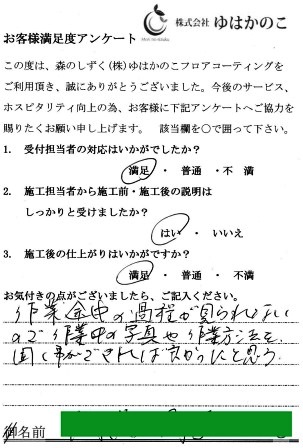 株式会社 ゆはかのこ
お客様満足度アンケート
この度は、森のしずく(株)ゆはかのこフロアコーティングを
ご利用頂き、誠にありがとうございました。今後のサービス、
ホスピタリティ向上の為、お客様に下記アンケートへご協力を
賜りたくお願い申し上げます。 該当欄を○で囲って下さい。
1. 受付担当者の対応はいかがでしたか?
満足 ・ 普通 ・不 満
2. 施工担当者から施工前・施工後の説明は
しっかりと受けましたか?
はい ・ いいえ
3. 施工後の仕上がりはいかがですか?
満足 ・ 普通 ・ 不満
お気付きの点がございましたら、ご記入ください。
作業途中の過程が見られない
ので作業中の写真や作業方法を
聞く事ができれば良かったと思う。
御名前